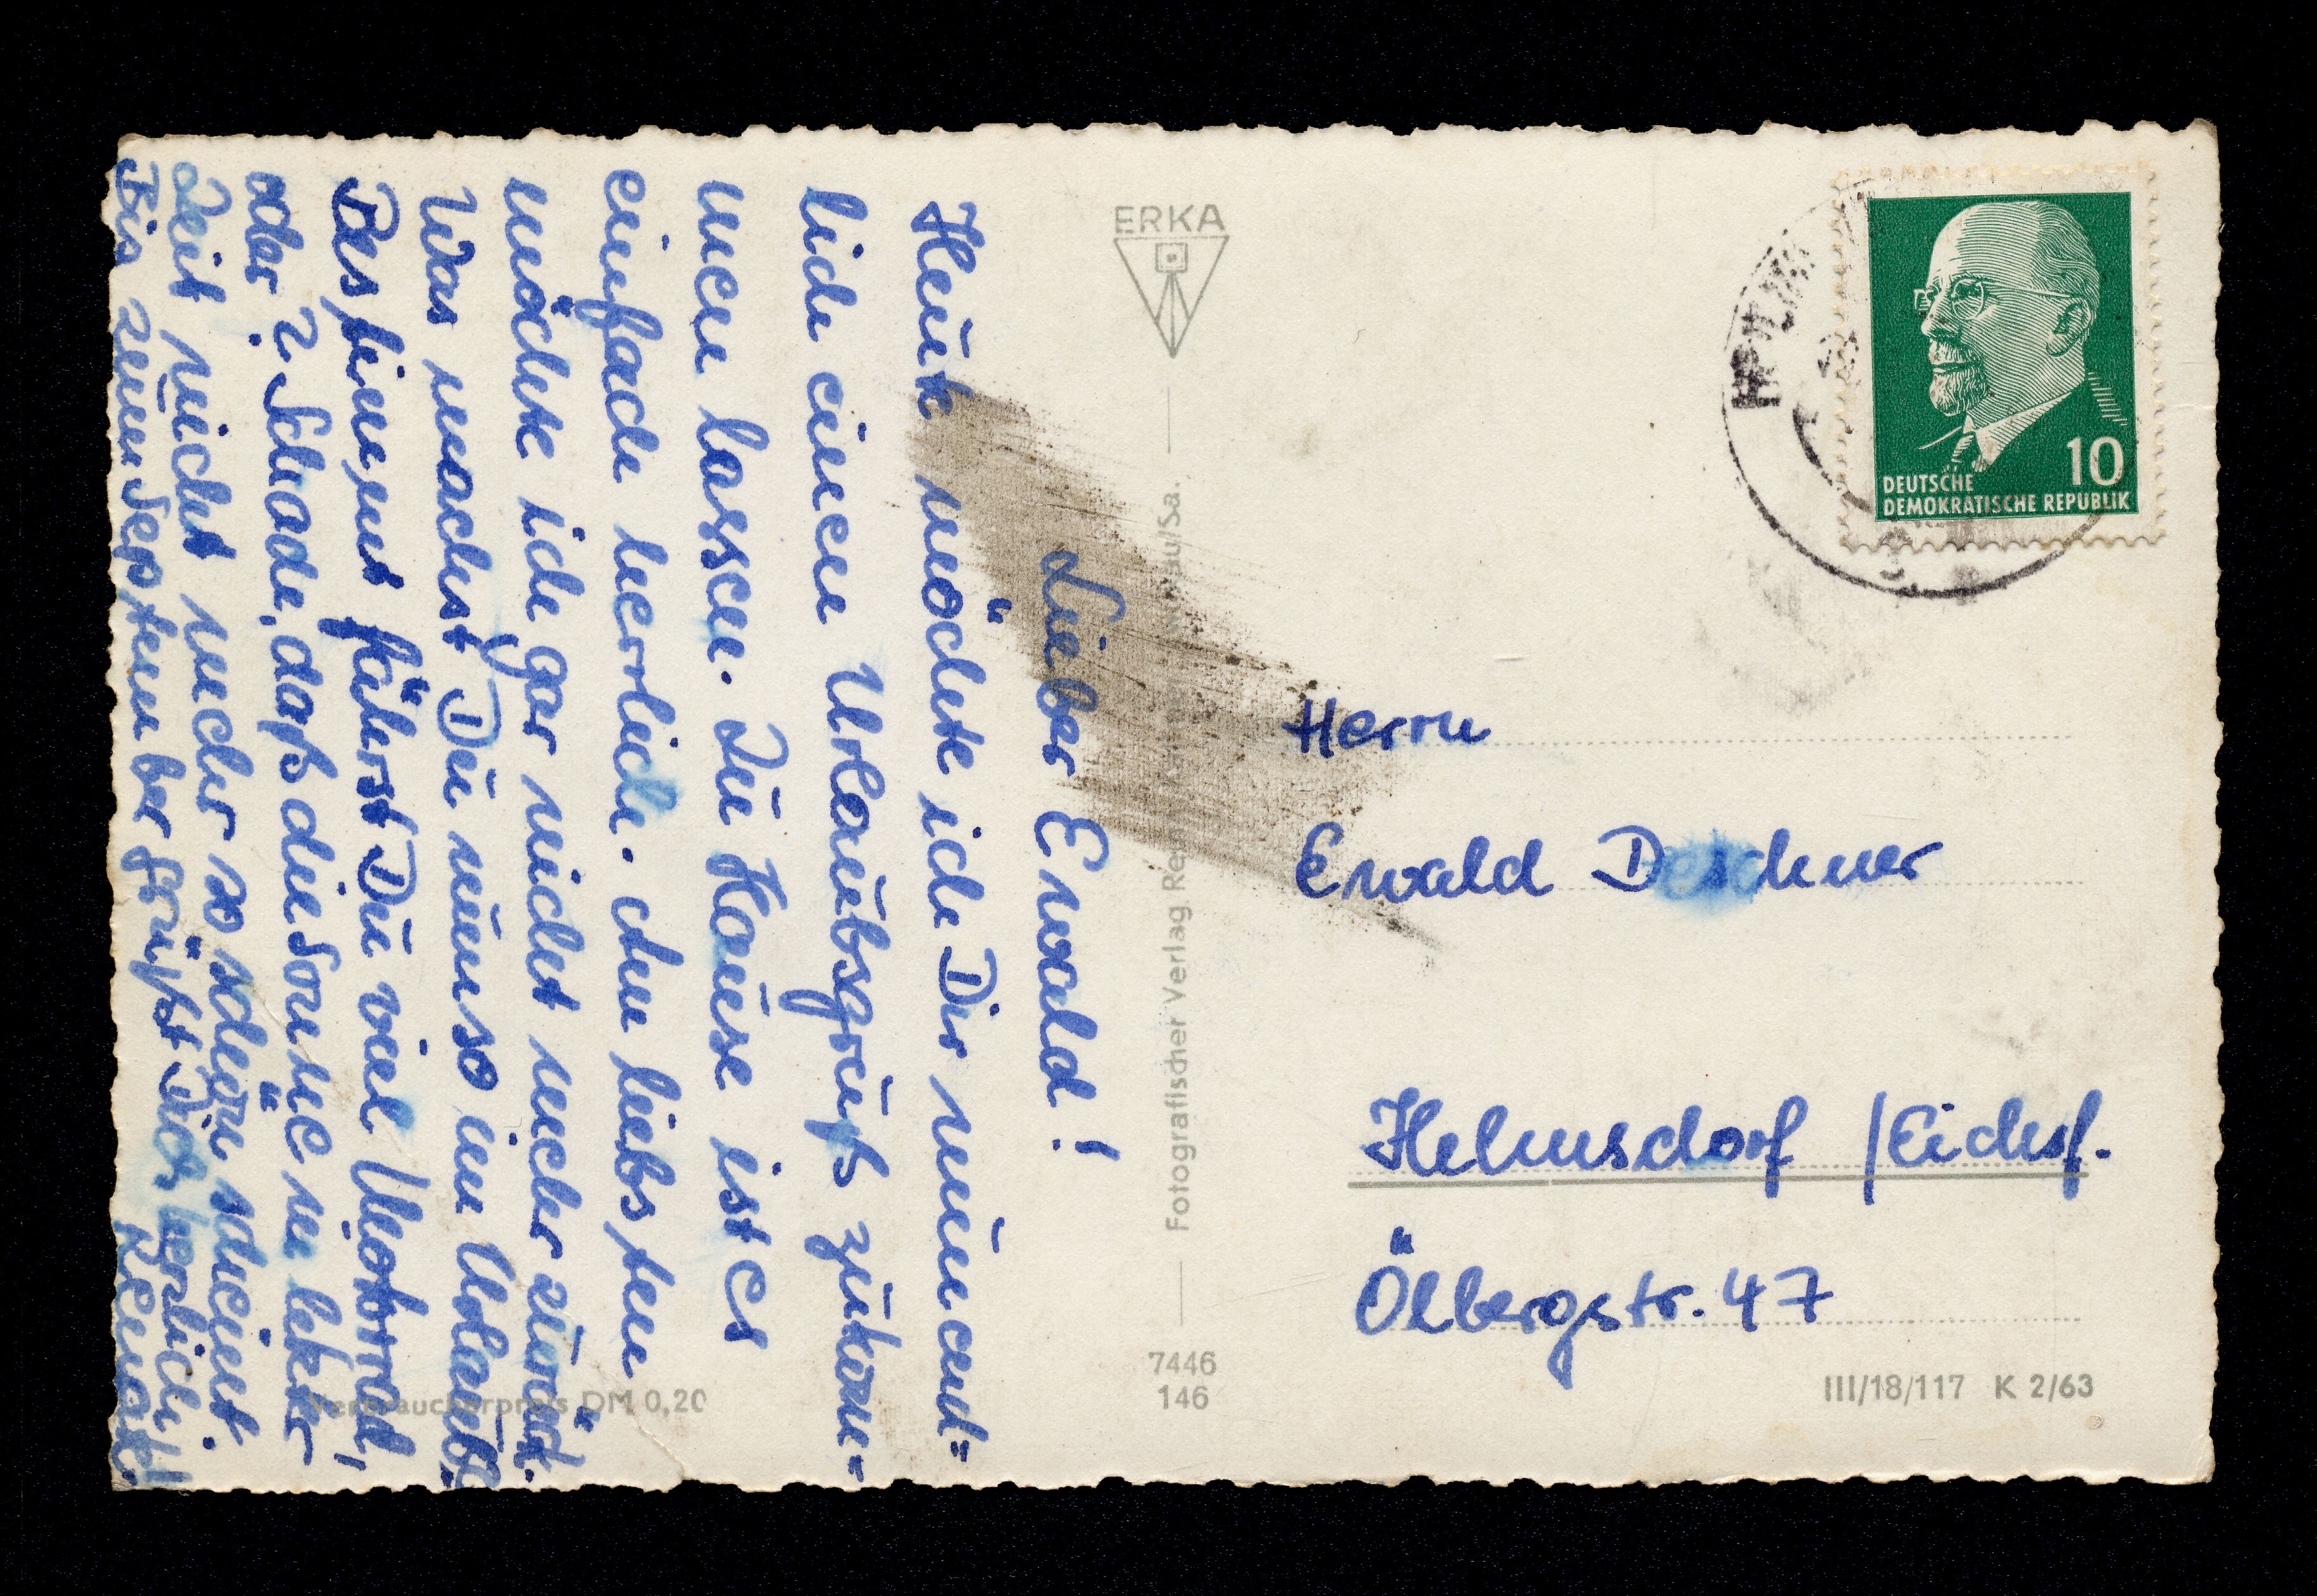 Lieber Ewald!
Heute möchte ich Dir nun end=
lich einen Urlaubsgruß zukom=
men lassen. Zu Hause ist es
einfach herrlich. Am liebsten
möchte ich gar nicht mehr zurück.
Was machst Du nun so im Urlaub?
Bestimmt fährst Du viel Motorrad,
oder? Schade, daß die Sonne in letzter
Zeit nicht mehr so schön scheint.
Bis zum September grüßt Dich herzlich
ERKA
Fotografischer Verlag
au/Sa.
7446
146
Verbraucherpreis DM 0,20
10
DEUTSCHE
DEMOKRATISCHE REPUBLIK
Herrn
Ewald Deschner
Helmsdorf /Eichsf.
Ölbergstr. 47
III/18/117 K 2/63